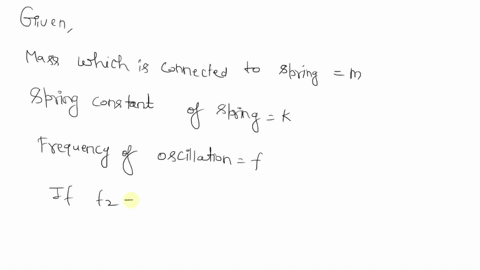 Given,
Mass which is connected to spring = m
Spring constant of spring = k
Frequency of oscillation = f
If f₂ -